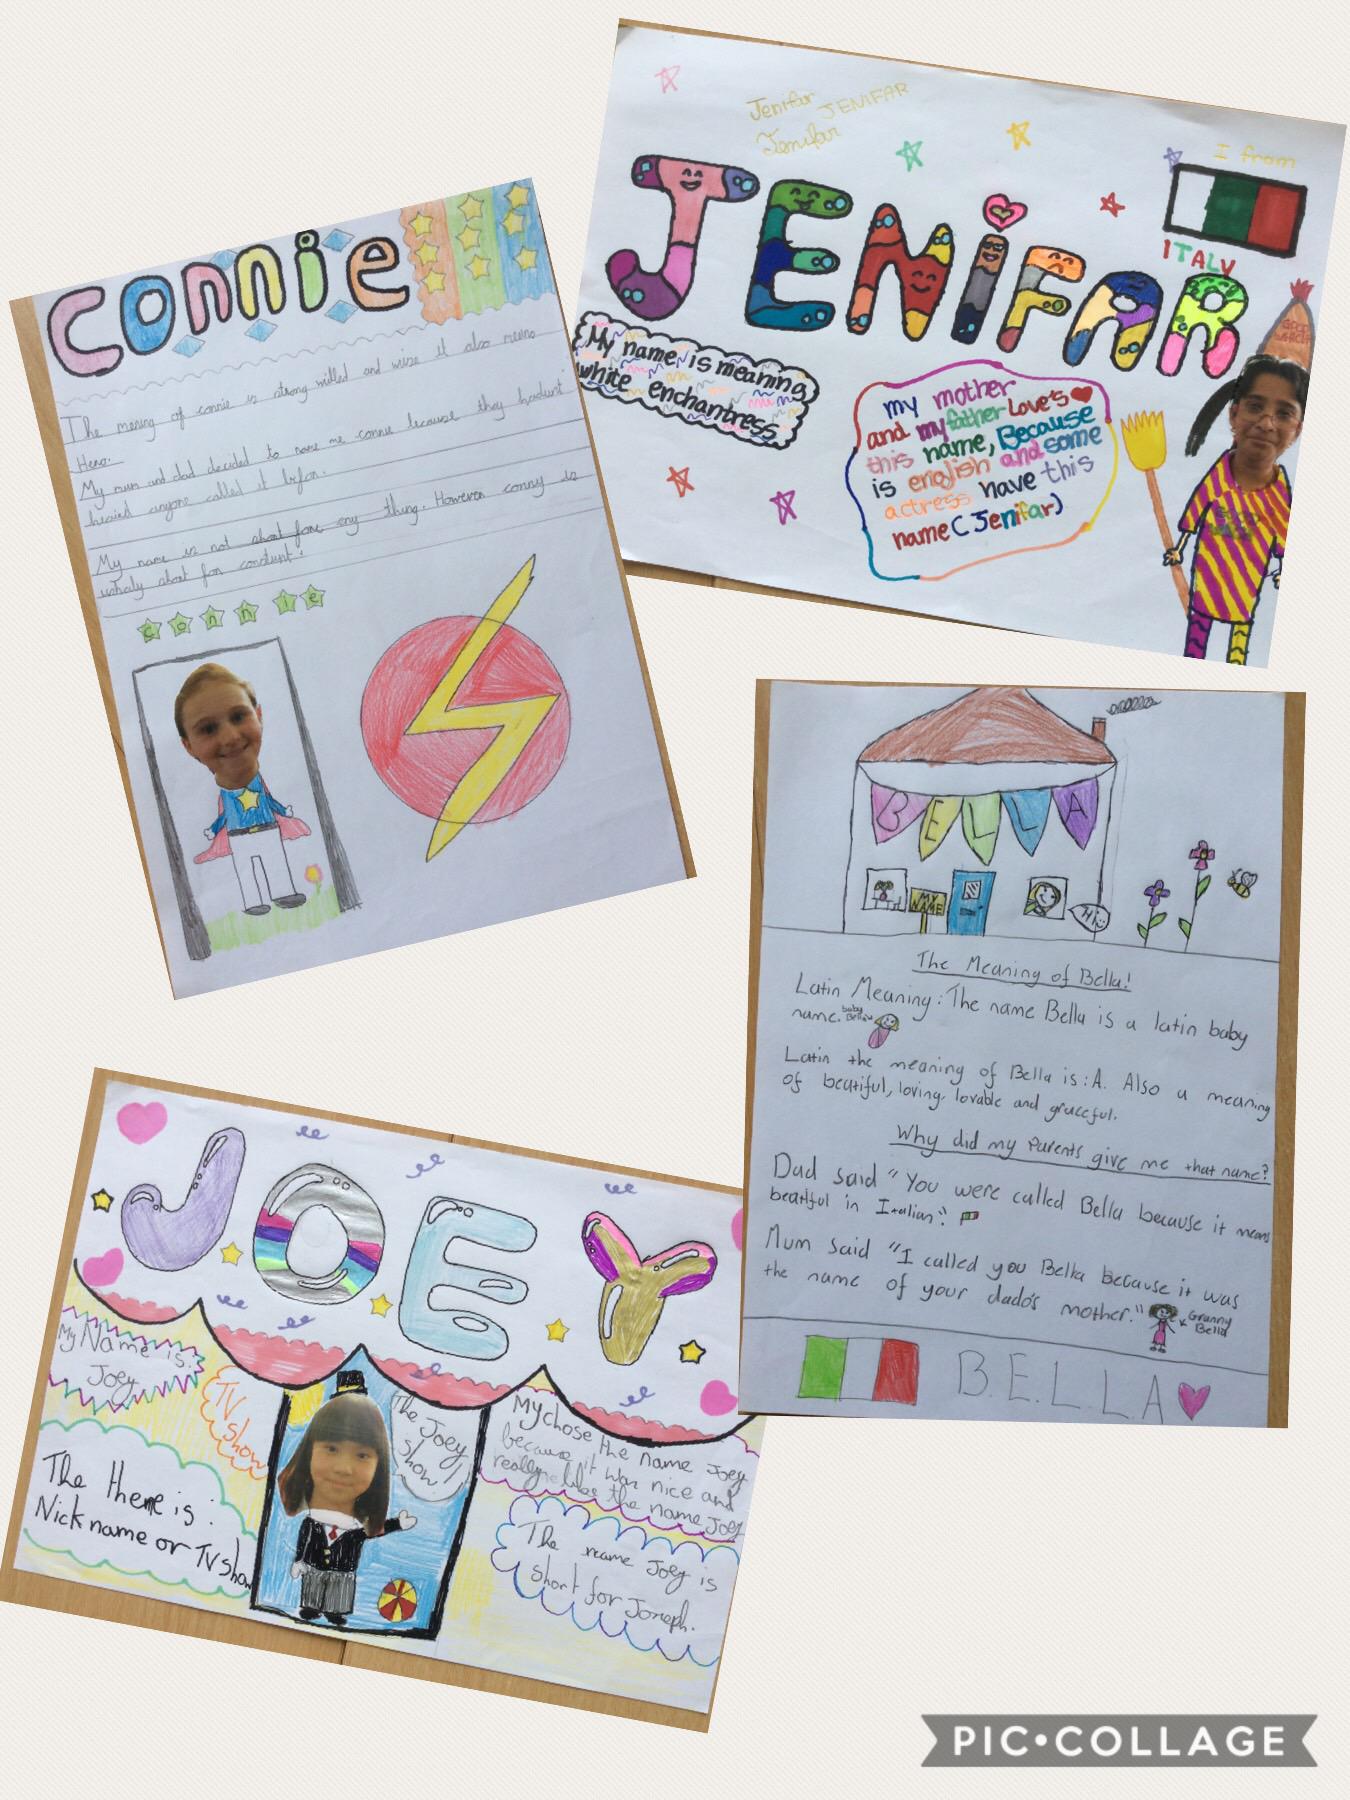 connie
The mening of connie is strong willed and wise it also means
Hero.
My mum and dad decided to name me connie because they hadunt
heaird anyone called it befor.
My name is not short fore any thing. However conny is
ushaly short for constunt.
connie
Jenifar JENIFAR
Jenifar
I from
ITALY
JENiFAR
My name is meaning
white enchantress
my mother
and my father Love's
this name, Because
is english and some
actress have this
name (Jenifar)
BELLA
MY
NAME
Hi
The Meaning of Bella!
Latin Meaning: The name Bella is a latin baby
name. baby Bella
Latin the meaning of Bella is: A. Also a meaning
of beatiful, loving, lovable and graceful.
Why did my parents give me that name?
Dad said "You were called Bella because it means
beatiful in Italian".
Mum said "I called you Bella because it was
the name of your dado's mother."
Granny
Bella
B.E.L.L.A
JOEY
My Name is:
Joey
TV
show
The theme is:
Nick name or TV show
The Joey
show!
My chose the name Joey
because it was nice and
really like the name Joey
The name Joey is
short for Joneph.
PIC•COLLAGE